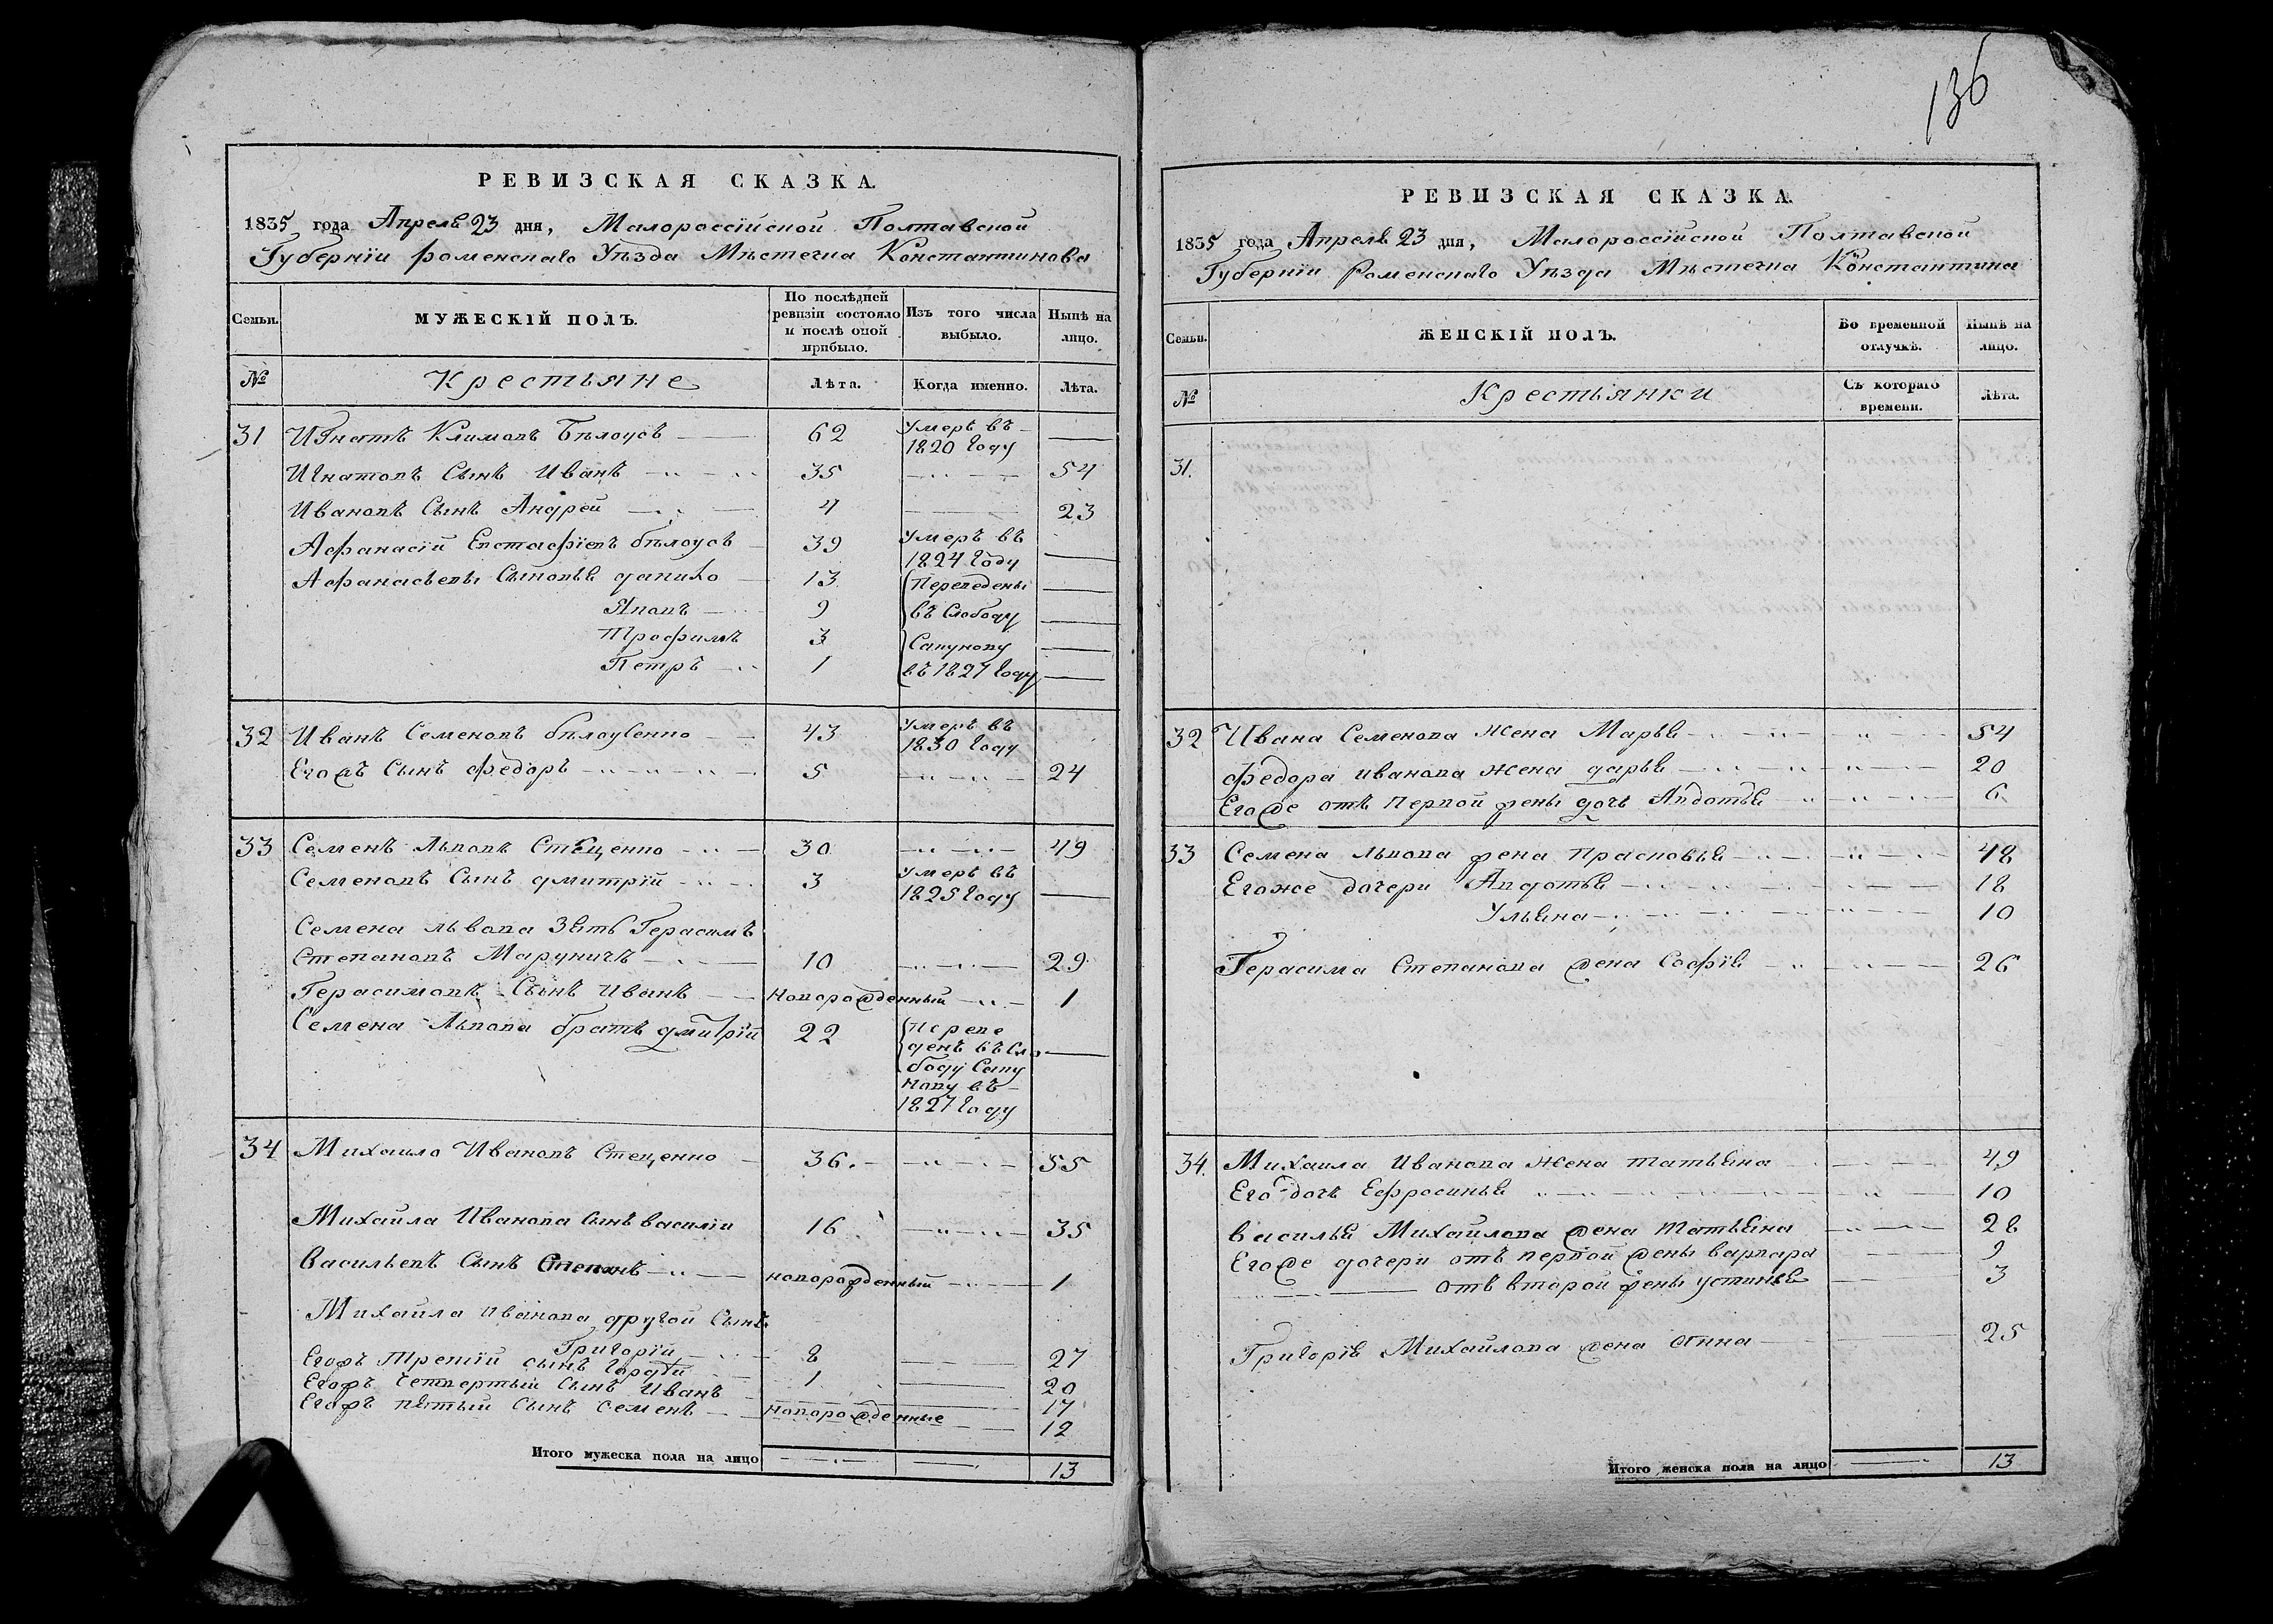 136
РЕВИЗСКАЯ СКАЗКА.
1835 года Апреля 23 дня, Малороссійской Полтавской
Губерніи Роменскаго Уѣзда Мѣстечка Константинова
Семьи. МУЖЕСКІЙ ПОЛЪ. По послѣдней ревизіи состояло и послѣ оной прибыло. Изъ того числа выбыло. Нынѣ на лицо.
№ Крестьяне Лѣта. Когда именно. Лѣта.
31 Игнатъ Климовъ Бѣлоусъ 62 Умеръ въ 1820 году
Игнатовъ Сынъ Иванъ 35 54
Ивановъ Сынъ Андрей 4 23
Афанасій Евстафіевъ бѣлоусъ 39 Умеръ въ 1824 году
Афанасьевы Сыновья данило 13 Переведены
Яковъ 9 въ Слободу
Трофимъ 3 Сапунову
Петръ 1 въ 1827 году
32 Иванъ Семеновъ бѣлоусенко 43 Умеръ въ 1830 году
Егожъ Сынъ федоръ 5 24
33 Семенъ Львовъ Стеценко 30 49
Семеновъ Сынъ дмитрій 3 Умеръ въ 1825 году
Семена львова Зять Герасимъ
Степановъ Маруничъ 10 29
Герасимовъ Сынъ Иванъ новорожденный 1
Семена Львова братъ дмитрій 22 Переве
денъ въ Сло
боду Сапу
нову въ
1827 году
34 Михаило Ивановъ Стеценко 36. 55
Михайла Иванова сынъ василій 16 35
Васильевъ Сынъ Степанъ новорожденный 1
Михайла иванова другой Сынъ
Григорій 8 27
Егожъ Третій сынъ Гордѣй 1 20
Егожъ Четвертый Сынъ Иванъ 17
Егожъ пятый Сынъ семенъ новорожденные 12
Итого мужеска пола на лицо 13
РЕВИЗСКАЯ СКАЗКА.
1835 года Апреля 23 дня, Малороссійской Полтавской
Губерніи Роменскаго Уѣзда Мѣстечка Константина
Семьи. ЖЕНСКІЙ ПОЛЪ. Во временной отлучкѣ. Нынѣ на лицо.
№ Крестьянки Съ котораго времени. Лѣта.
31.
32 Ивана Семенова Жена Марья 54
федора иванова жена дарья 20
Егоже отъ первой жены дочь Авдотья 6
33 Семена львова жена Прасковья 48
Егоже дочери Авдотья 18
Ульяна 10
Герасима Степанова жена Софія 26
34. Михаила Иванова жена татьяна 49
Его дочь Ефросинья 10
василья Михайлова жена татьяна 28
Егоже дочери отъ первой жены варвара 9
отъ второй жены устинья 3
Григорія Михайлова жена Анна 25
Итого женска пола на лицо 13